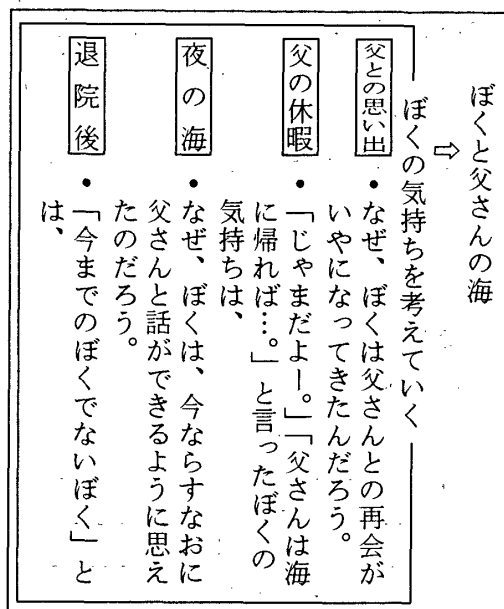 ぼくと父さんの海
⇨
ぼくの気持ちを考えていく
父との思い出
・なぜ、ぼくは父さんとの再会が
いやになってきたんだろう。
父の休暇
・「じゃまだよー。」「父さんは海
に帰れば…。」と言ったぼくの
気持ちは、
夜の海
・なぜ、ぼくは、今ならすなおに
父さんと話ができるように思え
たのだろう。
退院後
・「今までのぼくでないぼく」と
は、